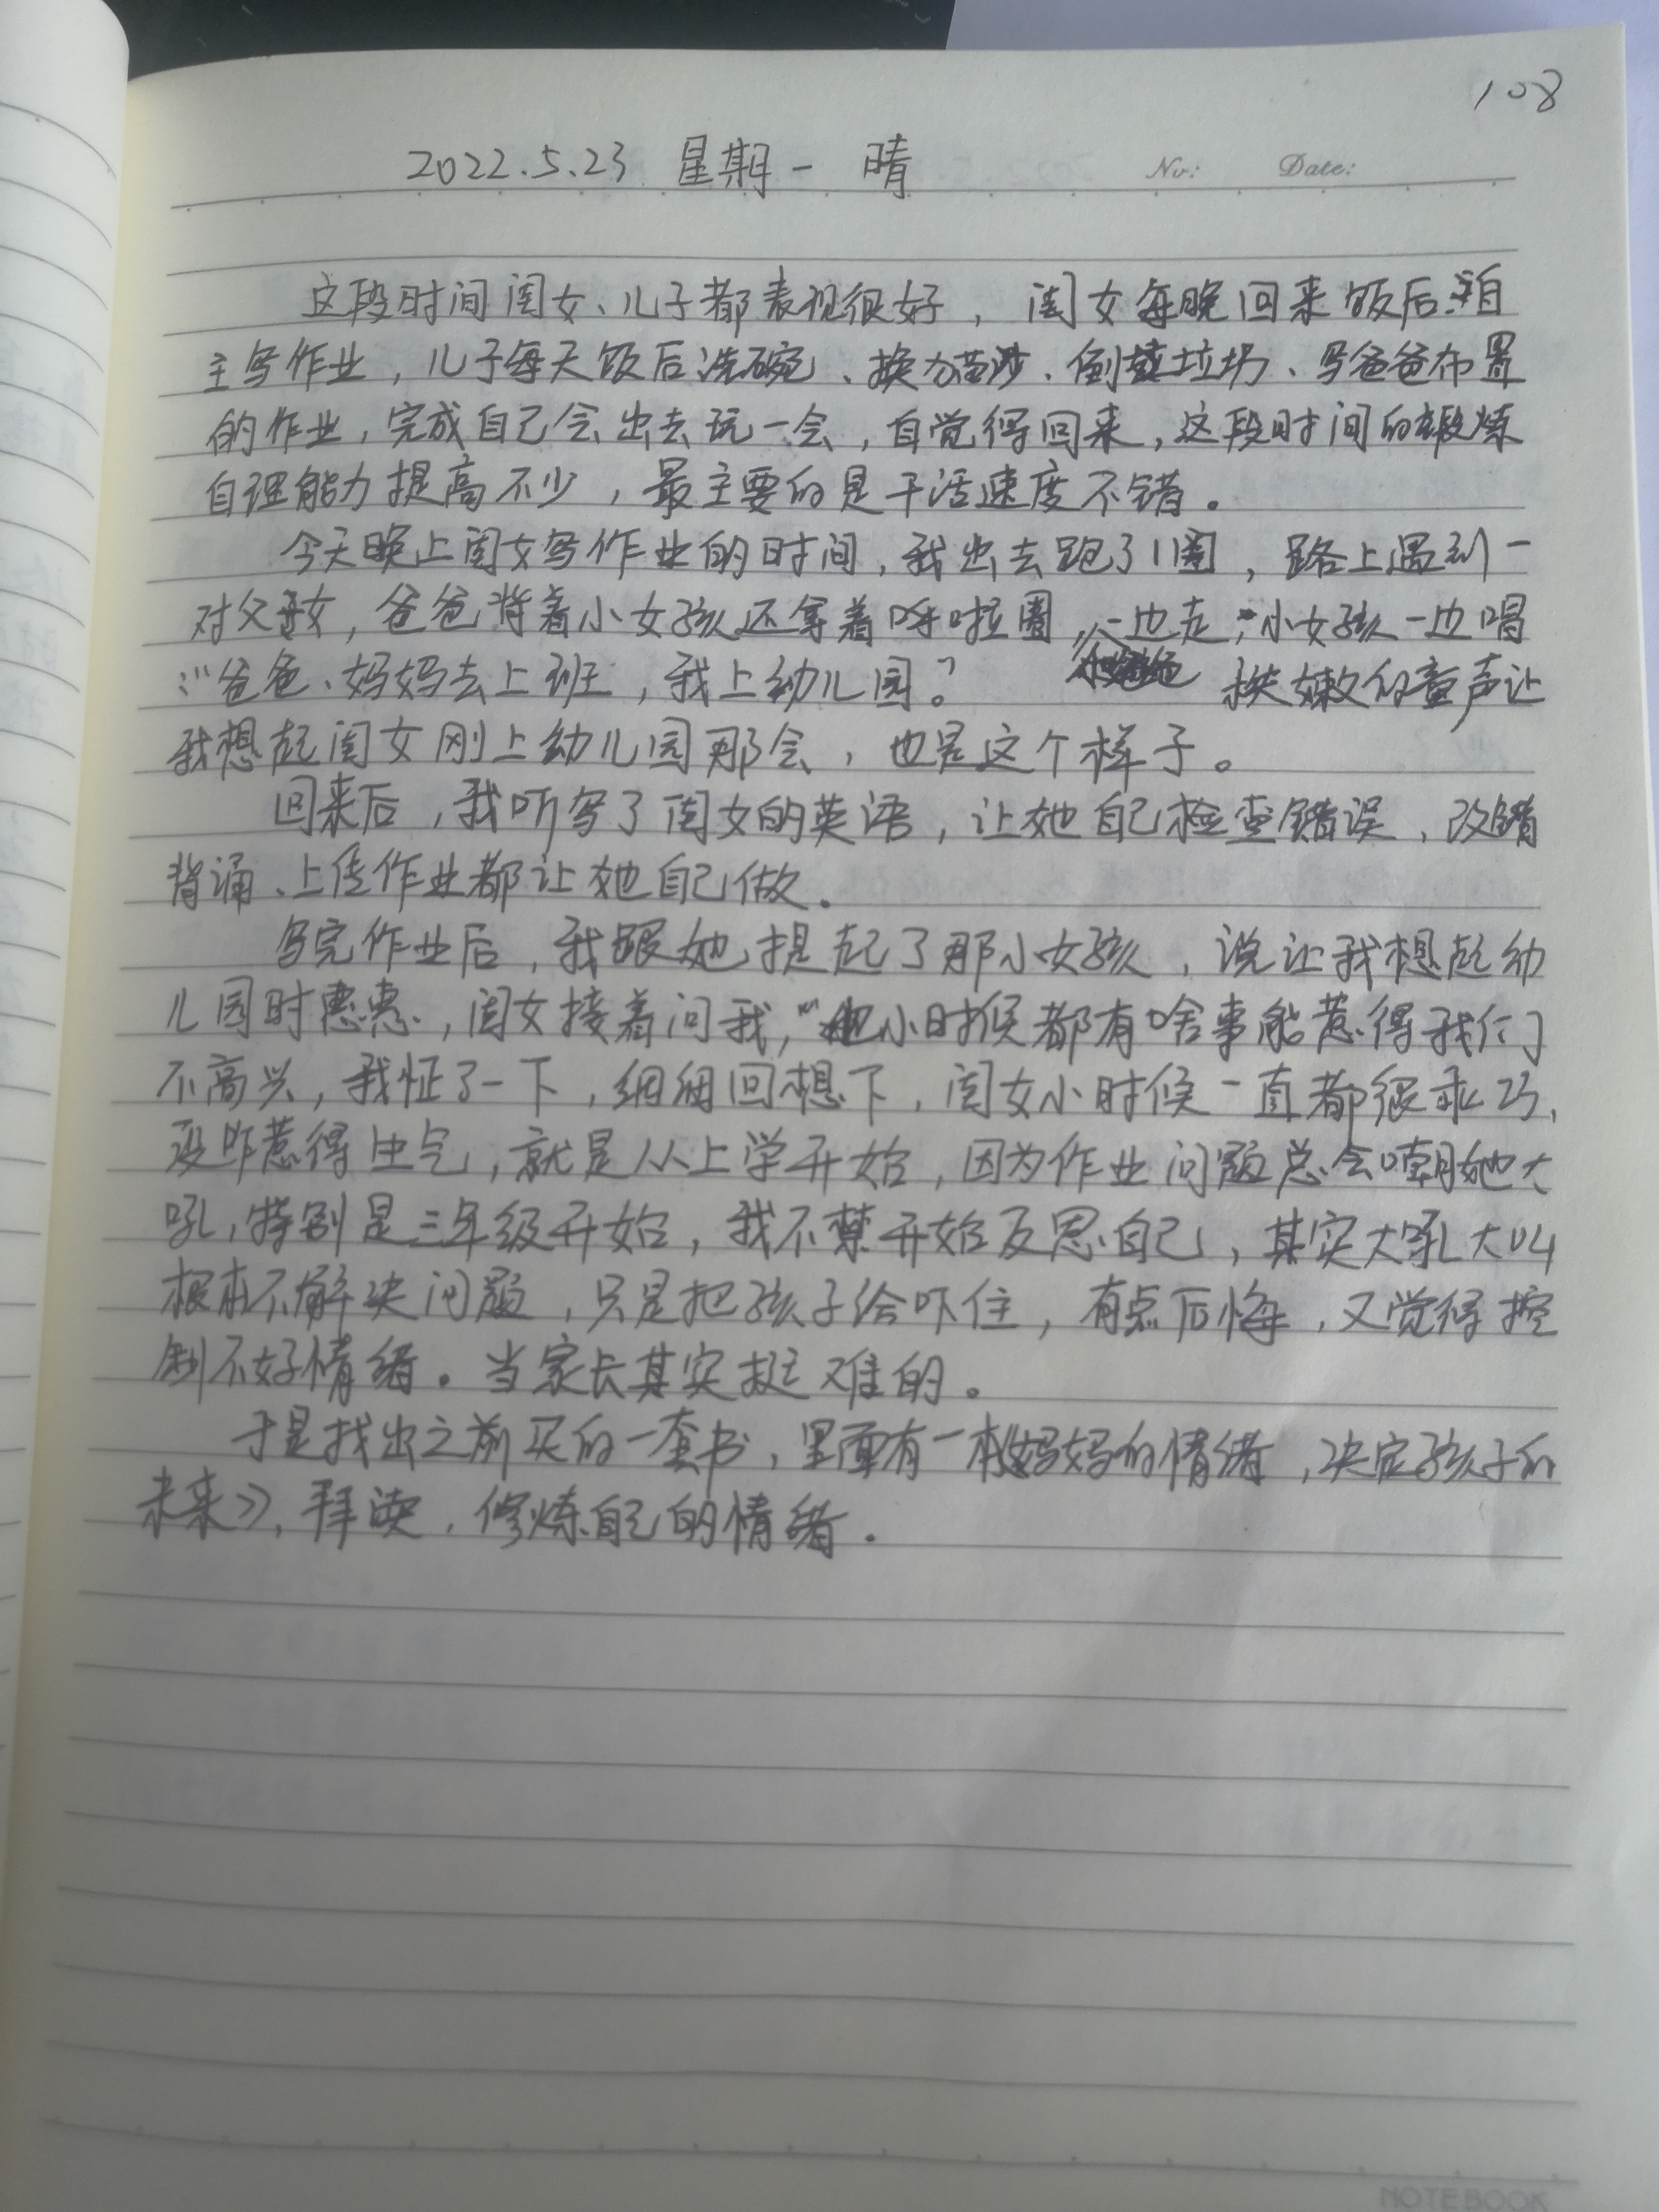 108
2022.5.23 星期一 晴
No: Date:
这段时间闺女、儿子都表现很好，闺女每晚回来饭后自
主写作业，儿子每天饭后洗碗、换猫沙、倒垃圾、写爸爸布置
的作业，完成自己会出去玩一会，自觉得回来，这段时间的锻炼
自理能力提高不少，最主要的是干活速度不错。
今天晚上闺女写作业的时间，我出去跑了1圈，路上遇到一
对父女，爸爸背着小女孩还拿着呼啦圈，一边走，小女孩一边唱
："爸爸、妈妈去上班，我上幼儿园。" 稚嫩的童声让
我想起闺女刚上幼儿园那会，也是这个样子。
回来后，我听写了闺女的英语，让她自己检查错误、改错
背诵、上传作业都让她自己做。
写完作业后，我跟她提起了那小女孩，说让我想起幼
儿园时惠惠，闺女接着问我，"小时候都有啥事能惹得我们
不高兴，我怔了一下，细细回想下，闺女小时候一直都很乖巧、
没咋惹得生气，就是从上学开始，因为作业问题总会嘲她大
吼，特别是三年级开始，我不禁开始反思自己，其实大吼大叫
根本不解决问题，只是把孩子给吓住，有点后悔，又觉得控
制不好情绪。当家长其实挺难的。
于是找出之前买的一套书，里面有一本《妈妈的情绪，决定孩子的
未来》，拜读，修炼自己的情绪。
NOTEBOOK